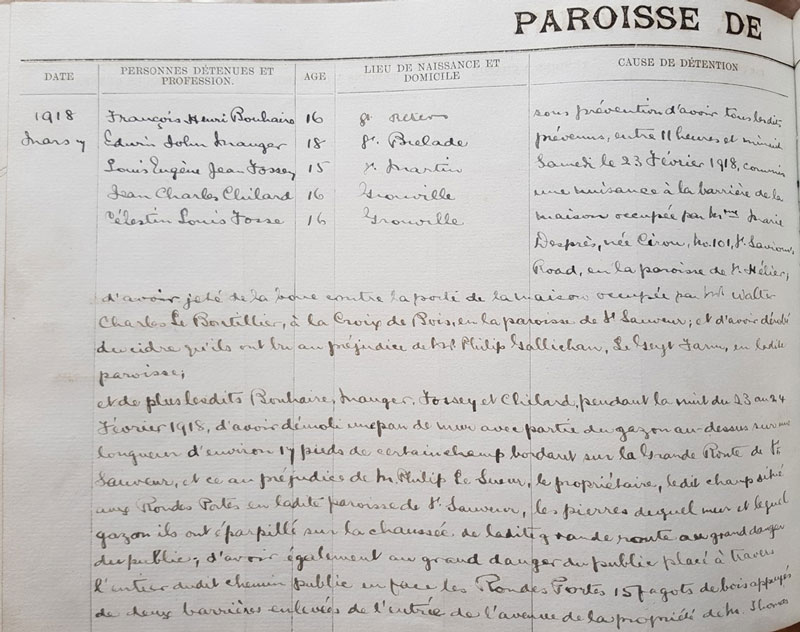 PAROISSE DE
DATE PERSONNES DÉTENUES ET PROFESSION. AGE LIEU DE NAISSANCE ET DOMICILE CAUSE DE DÉTENTION
1918 François Henri Bouhaire 16 St. Pierre sous prévention d'avoir tous lesdits
Mars 7 Edwin John Mauger 18 St. Brelade prévenus, entre 11 heures et minuit
Louis Eugène Jean Fossey 15 St. Martin Samedi le 23 Février 1918, commis
Jean Charles Chilard 16 Grouville une nuisance à la barrière de la
Célestin Louis Fosse 16 Grouville maison occupée par Mme Marie
Desprès, née Cirou, No. 101, St. Saviour's
Road, en la paroisse de St. Hélier;
d'avoir jeté de la boue contre la porte de la maison occupée par Mr. Walter
Charles Le Boutillier, à la Croix de Bois, en la paroisse de St Sauveur; et d'avoir dérobé
du cidre qu'ils ont bu au préjudice de Mr. Philip Gallichan, Le Geyt Farm, en ladite
paroisse;
et de plus lesdits Bouhaire, Mauger, Fossey et Chilard, pendant la nuit du 23 au 24
Février 1918, d'avoir démoli un pan de mur avec partie du gazon au-dessus sur une
longueur d'environ 17 pieds de certain champ bordant sur la Grande Route de St.
Sauveur, et ce au préjudice de M. Philip Le Sueur, le propriétaire, ledit champ situé
aux Rondes Portes en ladite paroisse de St. Sauveur, les pierres duquel mur et lequel
gazon ils ont éparpillé sur la chaussée de ladite grande route au grand danger
du public; d'avoir également au grand danger du public placé à travers
l'entier dudit chemin public en face les Rondes Portes 15 fagots de bois appuyés
de deux barrières enlevées de l'entrée de l'avenue de la propriété de M. Thomas